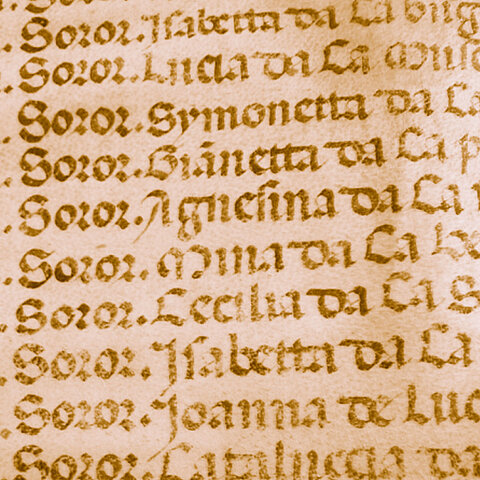 . Soror. Isabetta da La bug
. Soror. Lucia da La Musc
. Soror. Symonetta da La
. Soror. Giānetta da La p
. Soror. Agnesina da La
. Soror. Mina da La be
. Soror. Cecilia da La S
. Soror. Isabetta da La
. Soror. Joanna de Luc
. Soror. Cataluccia da